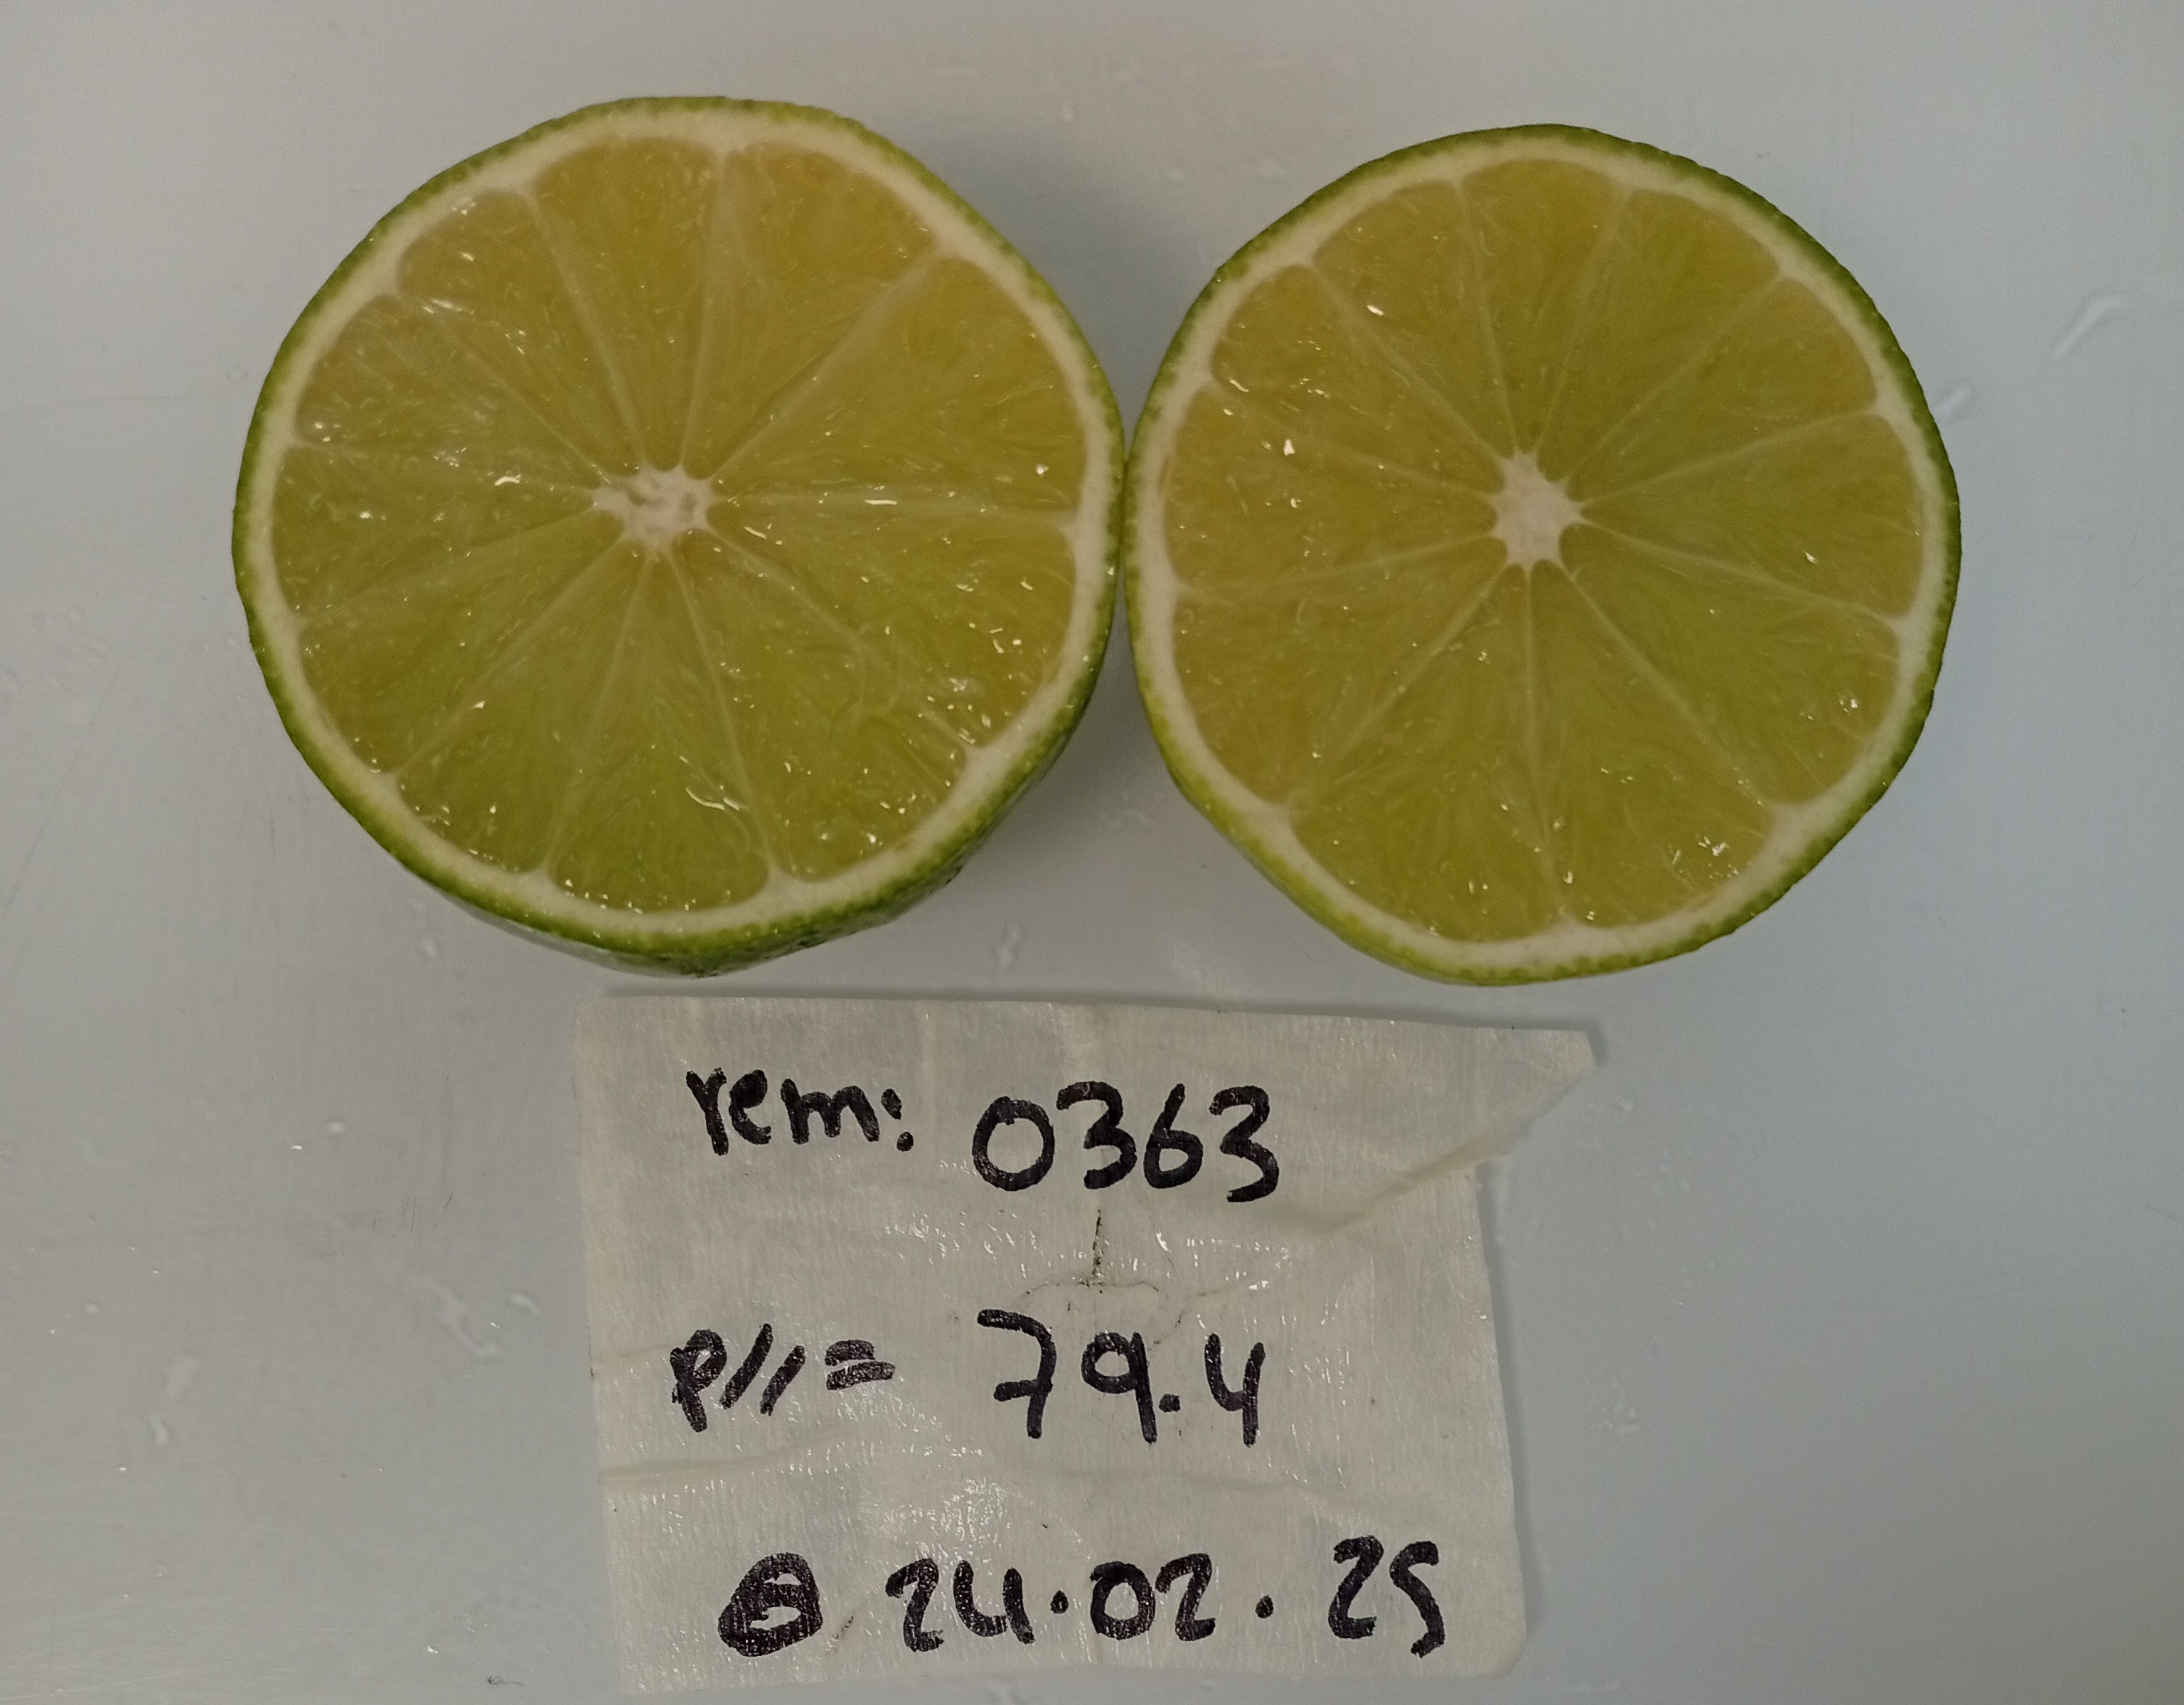 rem: 0363
p//= 79.4
24.02.25